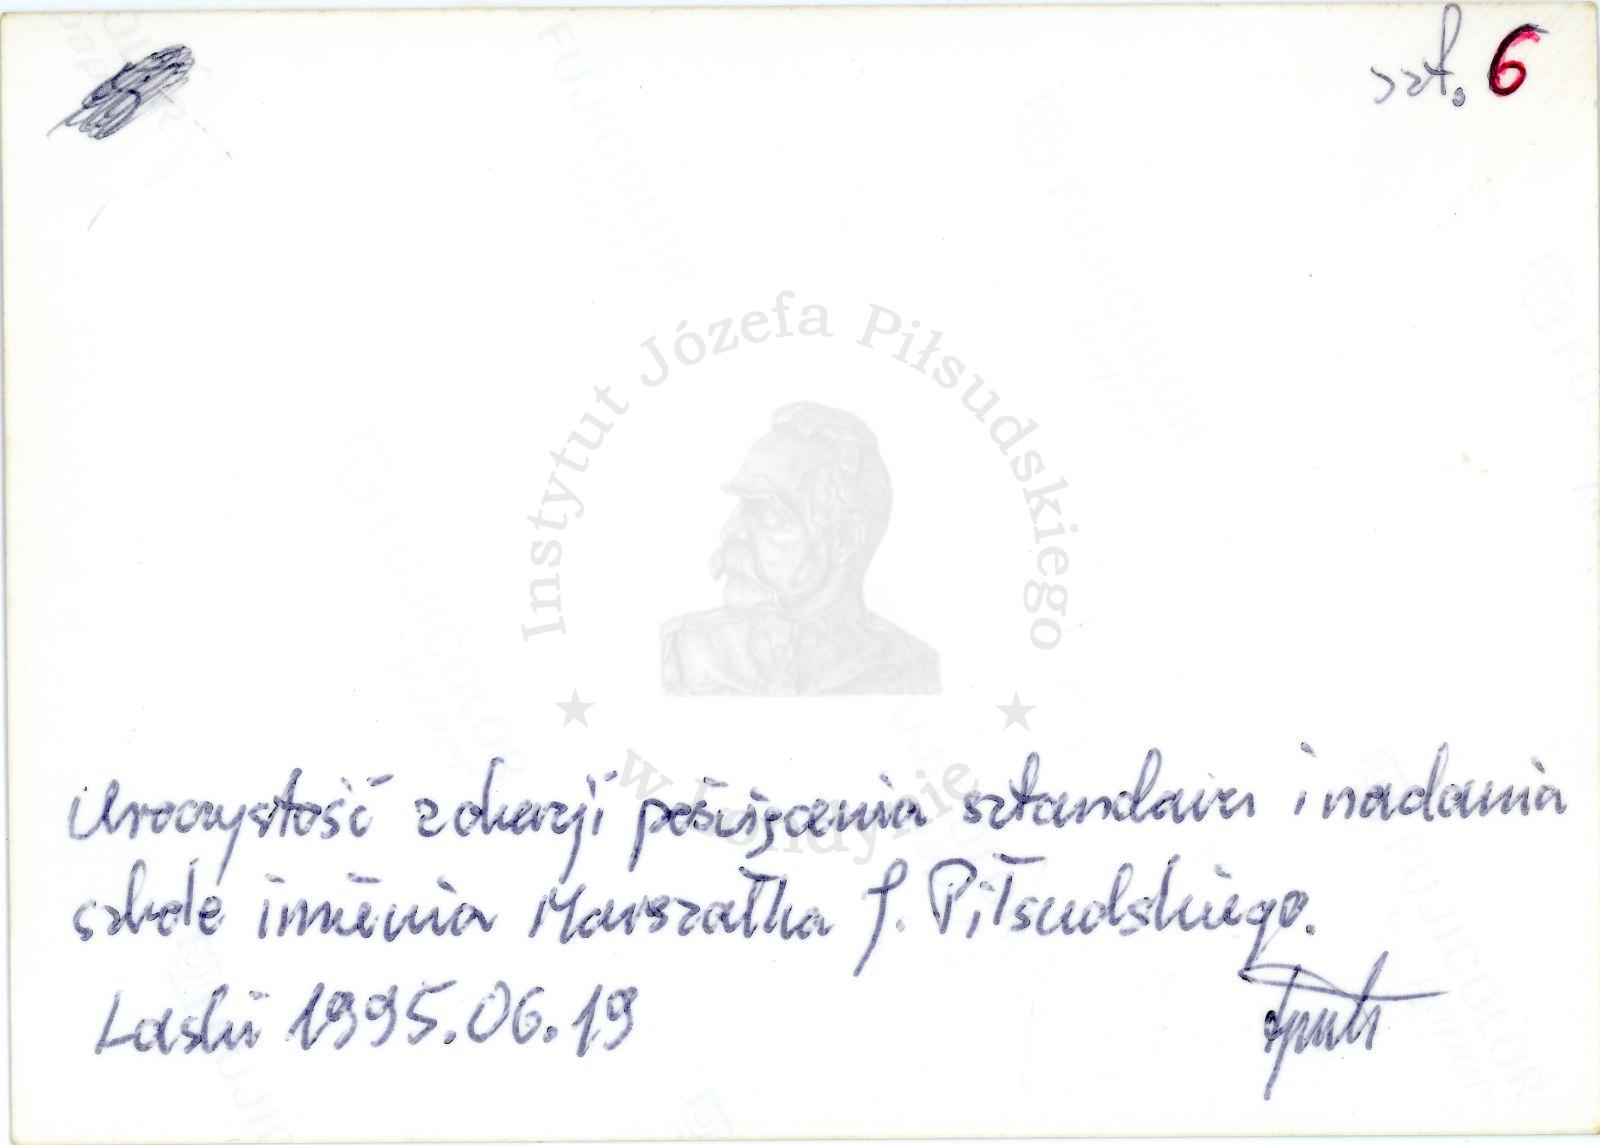 szt. 6
Instytut Józefa Piłsudskiego
w Londynie
Uroczystość z okazji poświęcenia sztandaru i nadania
szkole imienia Marszałka J. Piłsudskiego.
Laski 1995.06.19
FUJICOLOR
paper